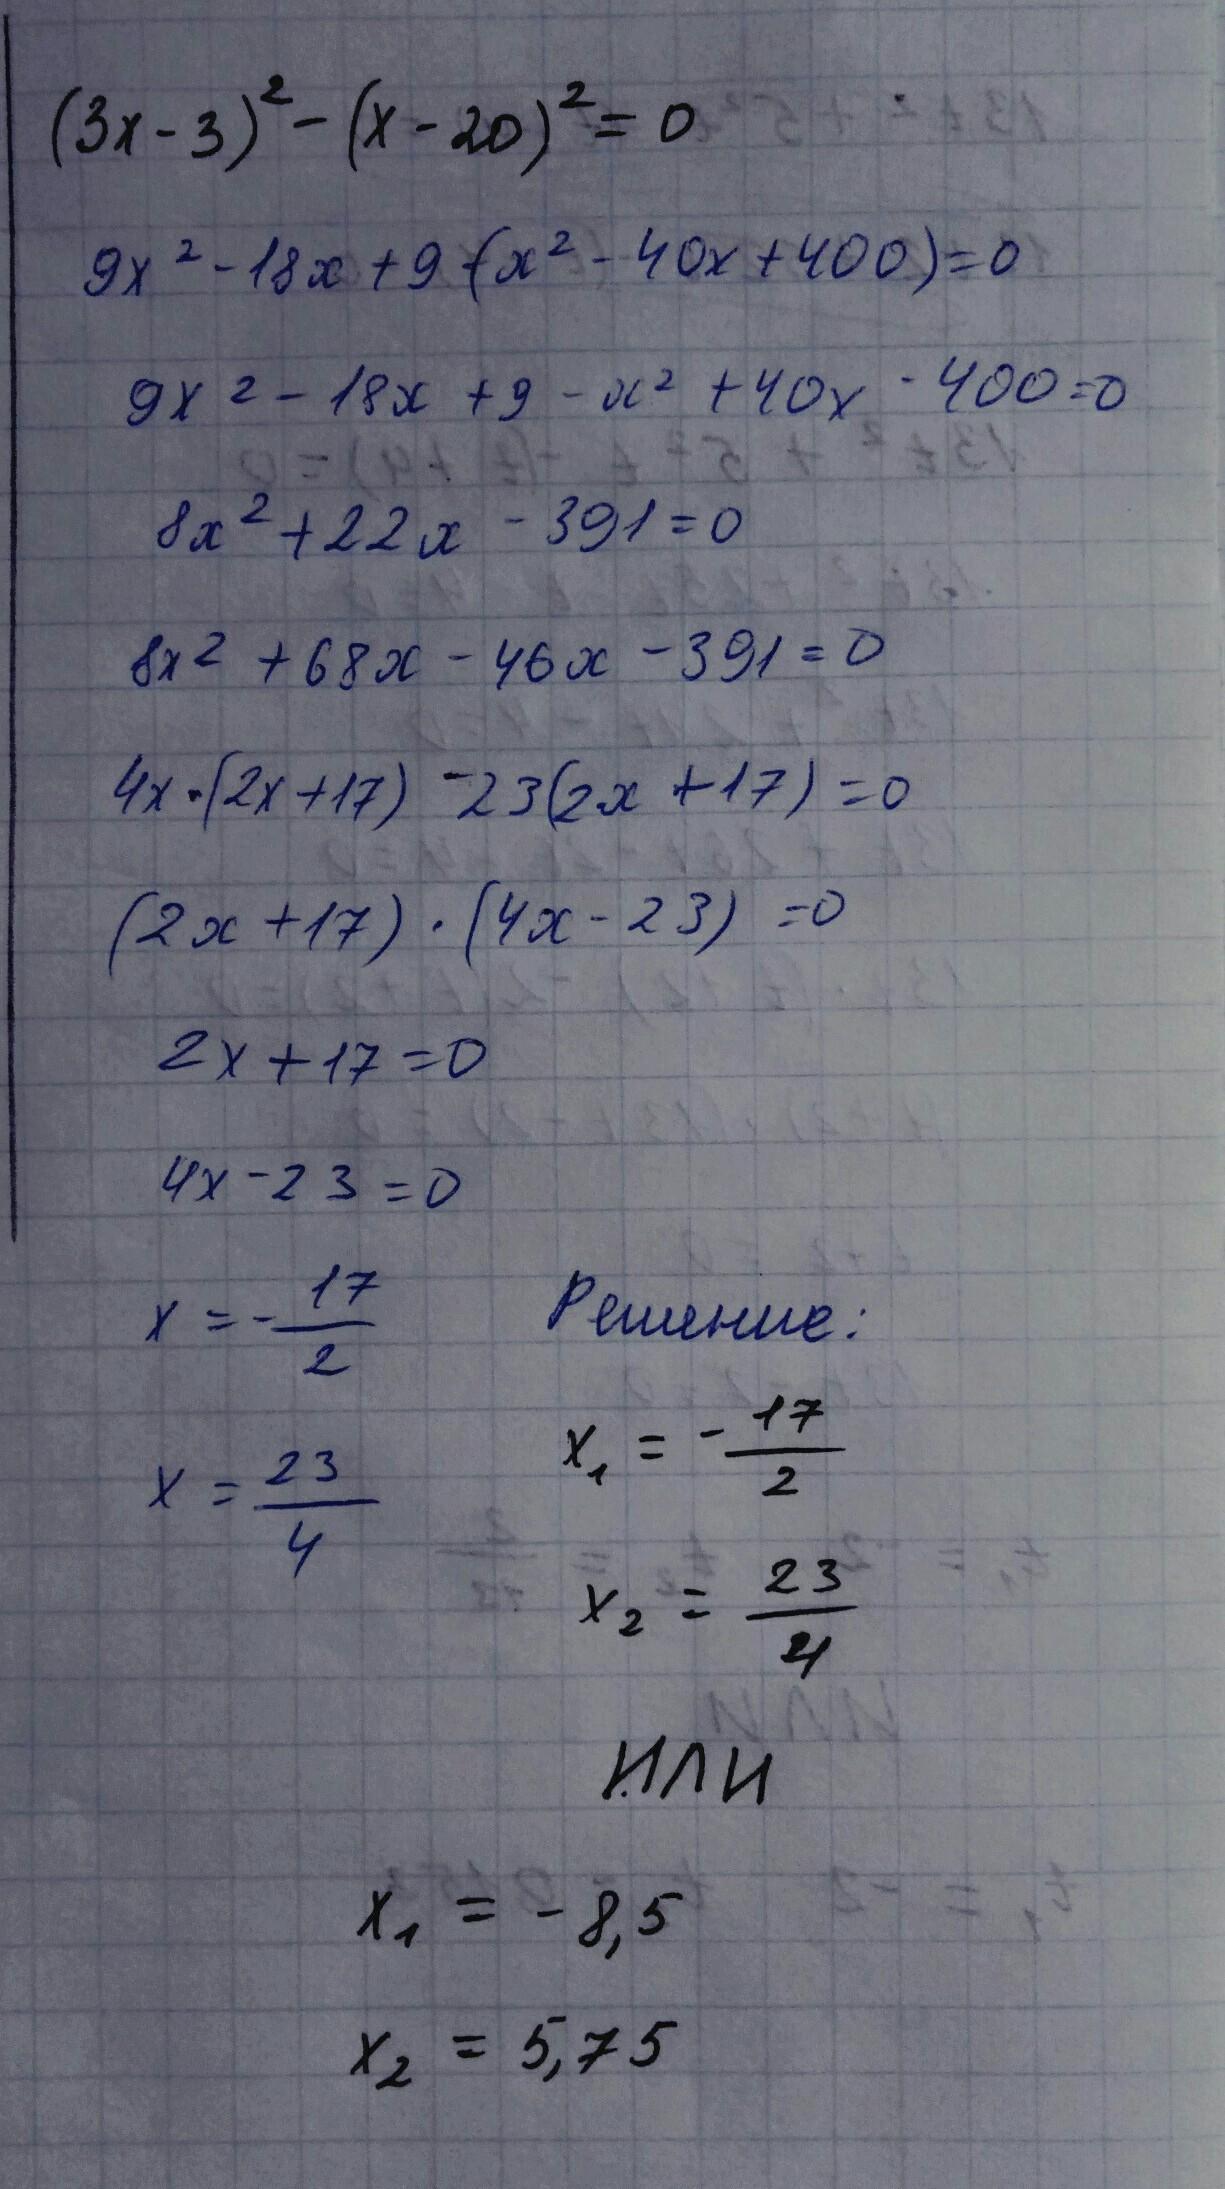 (3x-3)² - (x-20)² = 0
9x² - 18x + 9 - (x² - 40x + 400) = 0
9x² - 18x + 9 - x² + 40x - 400 = 0
8x² + 22x - 391 = 0
8x² + 68x - 46x - 391 = 0
4x·(2x+17) - 23(2x+17) = 0
(2x+17)·(4x-23) = 0
2x+17=0
4x-23=0
x = -17/2
x = 23/4
Решение:
x₁ = -17/2
x₂ = 23/4
или
x₁ = -8,5
x₂ = 5,75